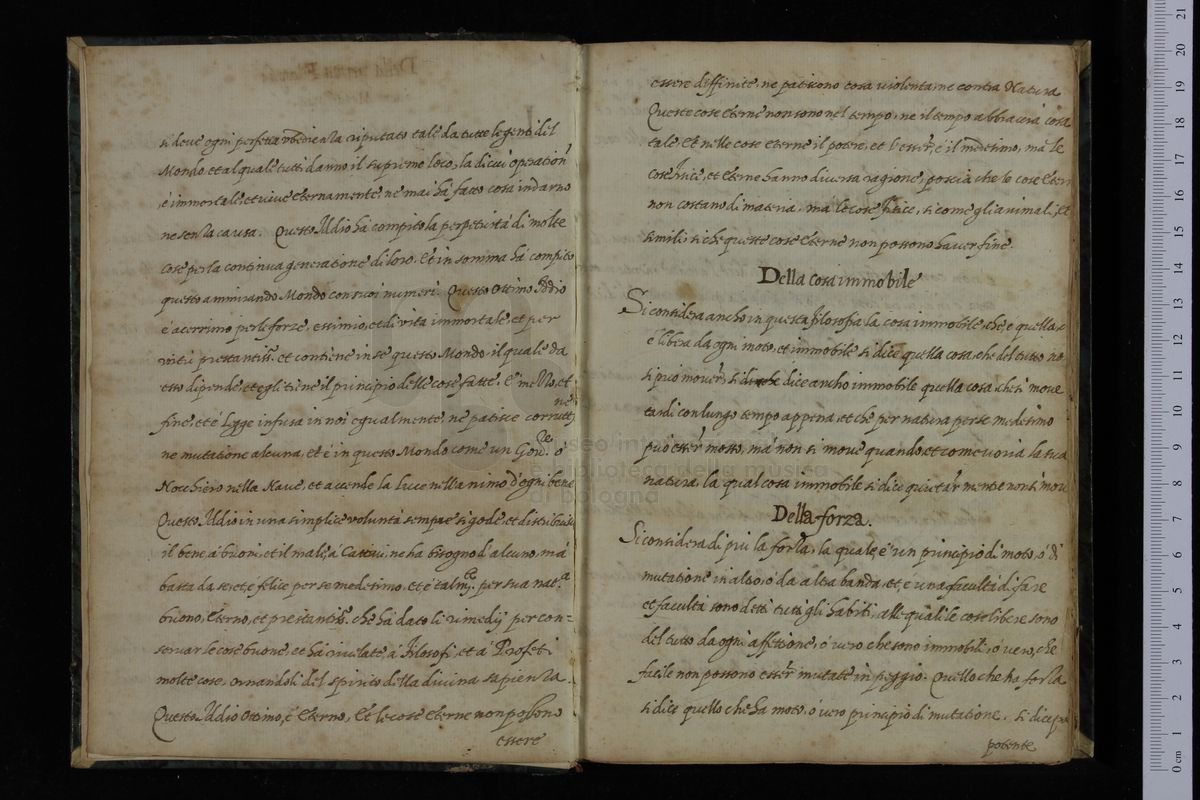 si deve ogni perfetta obedienza riputato tale da tutte le genti del
Mondo et al quale tutti danno il supremo loco, la di cui operation
è immortale, et vive eternamente, nè mai hà fatto cosa indarno
ne senza causa. Questo Iddio hà compito la perpetuità di molte
cose per la continua generatione di loro, et in somma hà compito
questo ammirando Mondo con suoi numeri. Questo Ottimo Iddio
è acerrimo per le forze, essimio, et di vita immortale, et per
virtù prestantiss. et contiene in se questo Mondo, il quale da
esso dipende, et egli tiene il principio delle cose fatte, el mezzo, et
fine, et è legge infusa in noi egualmente, nè patisce corrutt.
ne
ne mutatione alcuna, et è in questo Mondo come un Gov.re ò
Nocchiero nella Nave, et accende la luce nell'animo d'ogni bene
Questo Iddio in una simplice voluntà sempre si gode, et distribuisce
il bene a buoni, et il male à Cattivi, ne ha bisogno d'alcuno, mà
basta da se, et è felice per se medesimo, et è talm.te per sua nat.a
buono, Eterno, et prestantiss. che hà dato li rimedij per con=
servar le cose buone, et hà rivelate à Filosofi, et à Profeti
molte cose, ornandoli del spirito della divina sapienza
Questo Iddio Ottimo, è Eterno, Et le cose Eterne non possono
essere
essere diffinite, ne patiscono cosa violenta, ne contra Natura
Queste cose Eterne non sono nel tempo, ne il tempo abbraccia cosa
tale, Et nelle cose eterne il potere, et l'esser, è il medesimo, mà le
cose fisice, et Eterne hanno diversa ragione, poscia che le cose Etern
non costano di materia, ma le cose fisice, si come gli animali, et
simili si che queste cose Eterne non possono haver fine.
Della cosa immobile
Si considera ancho in questa filosofia la cosa immobile, che è quella, c
è libera da ogni moto, et immobile si dice quella cosa, che del tutto no
si può mover, si dice ancho immobile quella cosa, che si move
tardi con lungo tempo appena, et che per natura per se medesimo
può esser mosso, mà non si move quando, et come vorìa la sua
natura, la qual cosa immobile si dice quietar mentre non si mov
Della forza.
Si considera di più la forza, la quale è un principio di moto, ò di
mutatione in altro, ò da altra banda, et è una facultà di fare
et facultà sono detti tutti gli habiti, alle quali le cose libere sono
del tutto da ogni affettione, ò vero che sono immobili, ò vero, che
facile non possono esser mutate in peggio. Quello che ha forza
si dice quello che ha moto, ò vero principio di mutatione. si dice
potente
museo internazionale
e biblioteca della musica
di bologna
0 cm 1 2 3 4 5 6 7 8 9 10 11 12 13 14 15 16 17 18 19 20 21